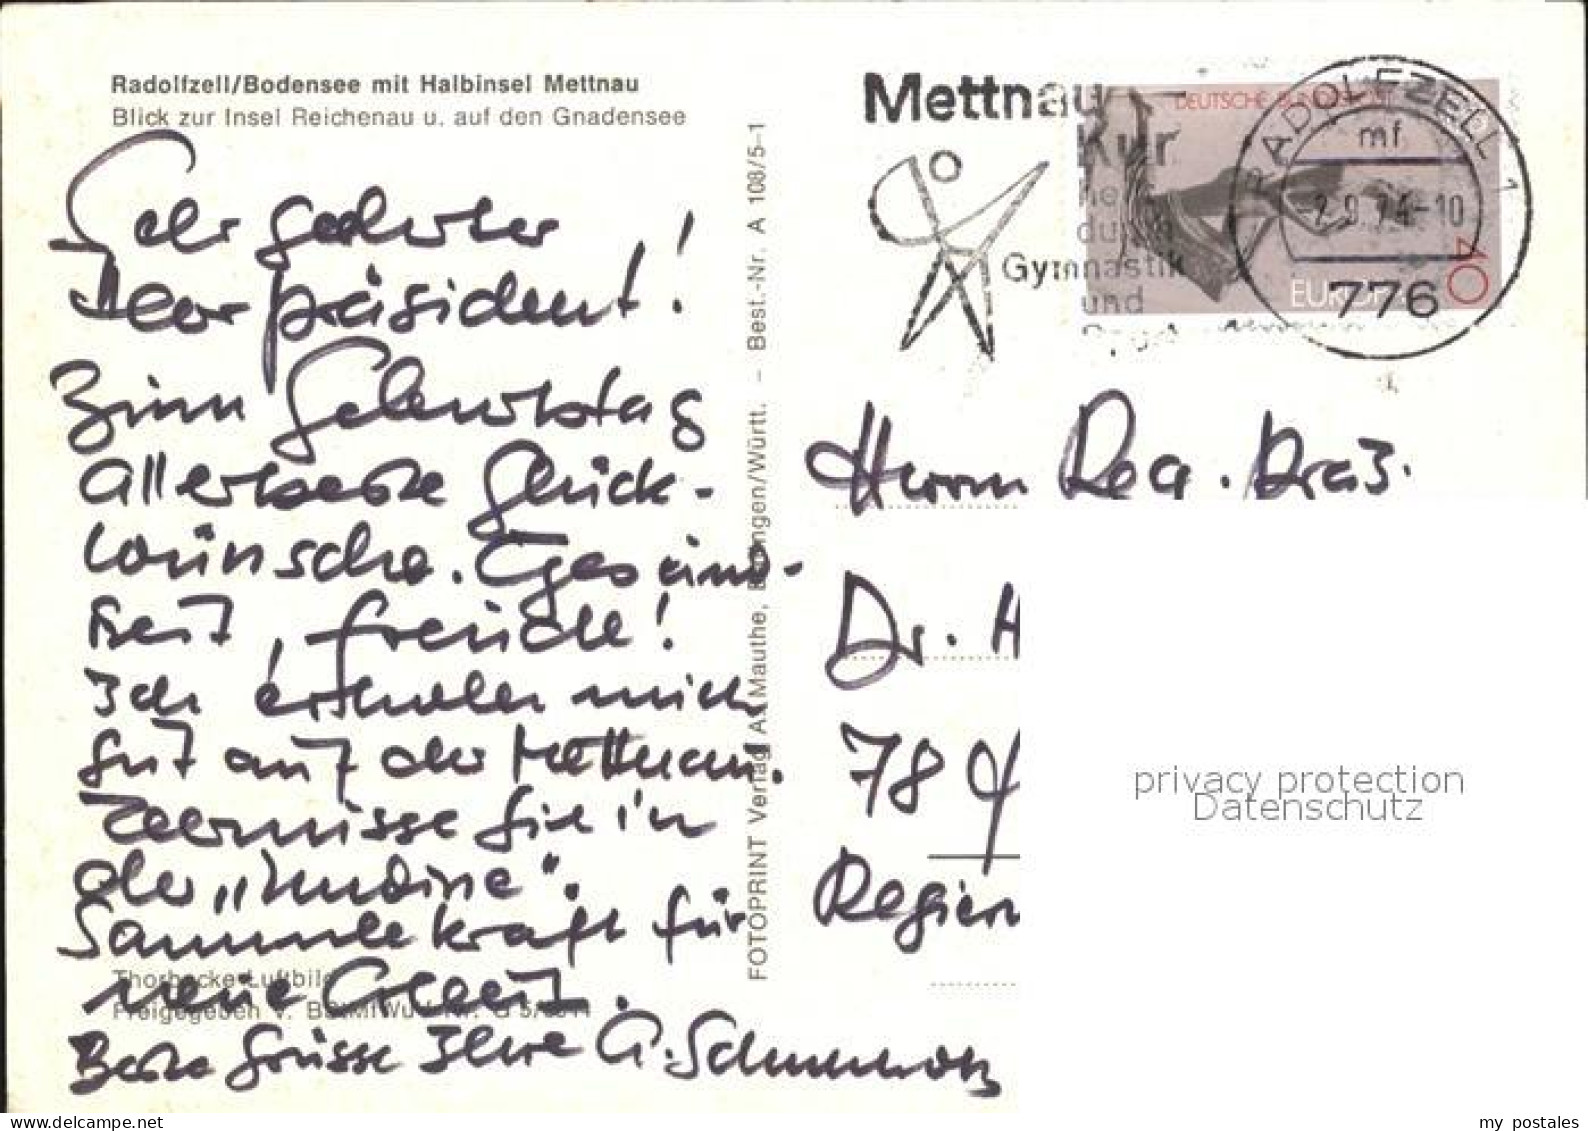 Radolfzell/Bodensee mit Halbinsel Mettnau
Blick zur Insel Reichenau u. auf den Gnadensee
Sehr geehrter
Herr präsident!
Zum Geburtstag
allerbeste Glück-
wünsche. Gesund-
heit, freude!
Ich erhole mich
gut auf der Mettnau.
Vermisse Sie in
der „
Sammle kraft für
neue Arbeit.
Beste Grüsse Ihre G.
Thorbecke-Luftbild
Freigegeben v.
FOTOPRINT Verlag A. Mauthe, Ebingen/Württ. – Best.-Nr. A 108/5-1
Mettnau
Kur
heilt
durch
Gymnastik
und
DEUTSCHE BUNDESPOST
EUROPA
40
RADOLFZELL 1
mf
-2.9.74-10
776
Herrn Reg. Präs.
Dr. H
78
Regier
privacy protection
Datenschutz
my postales